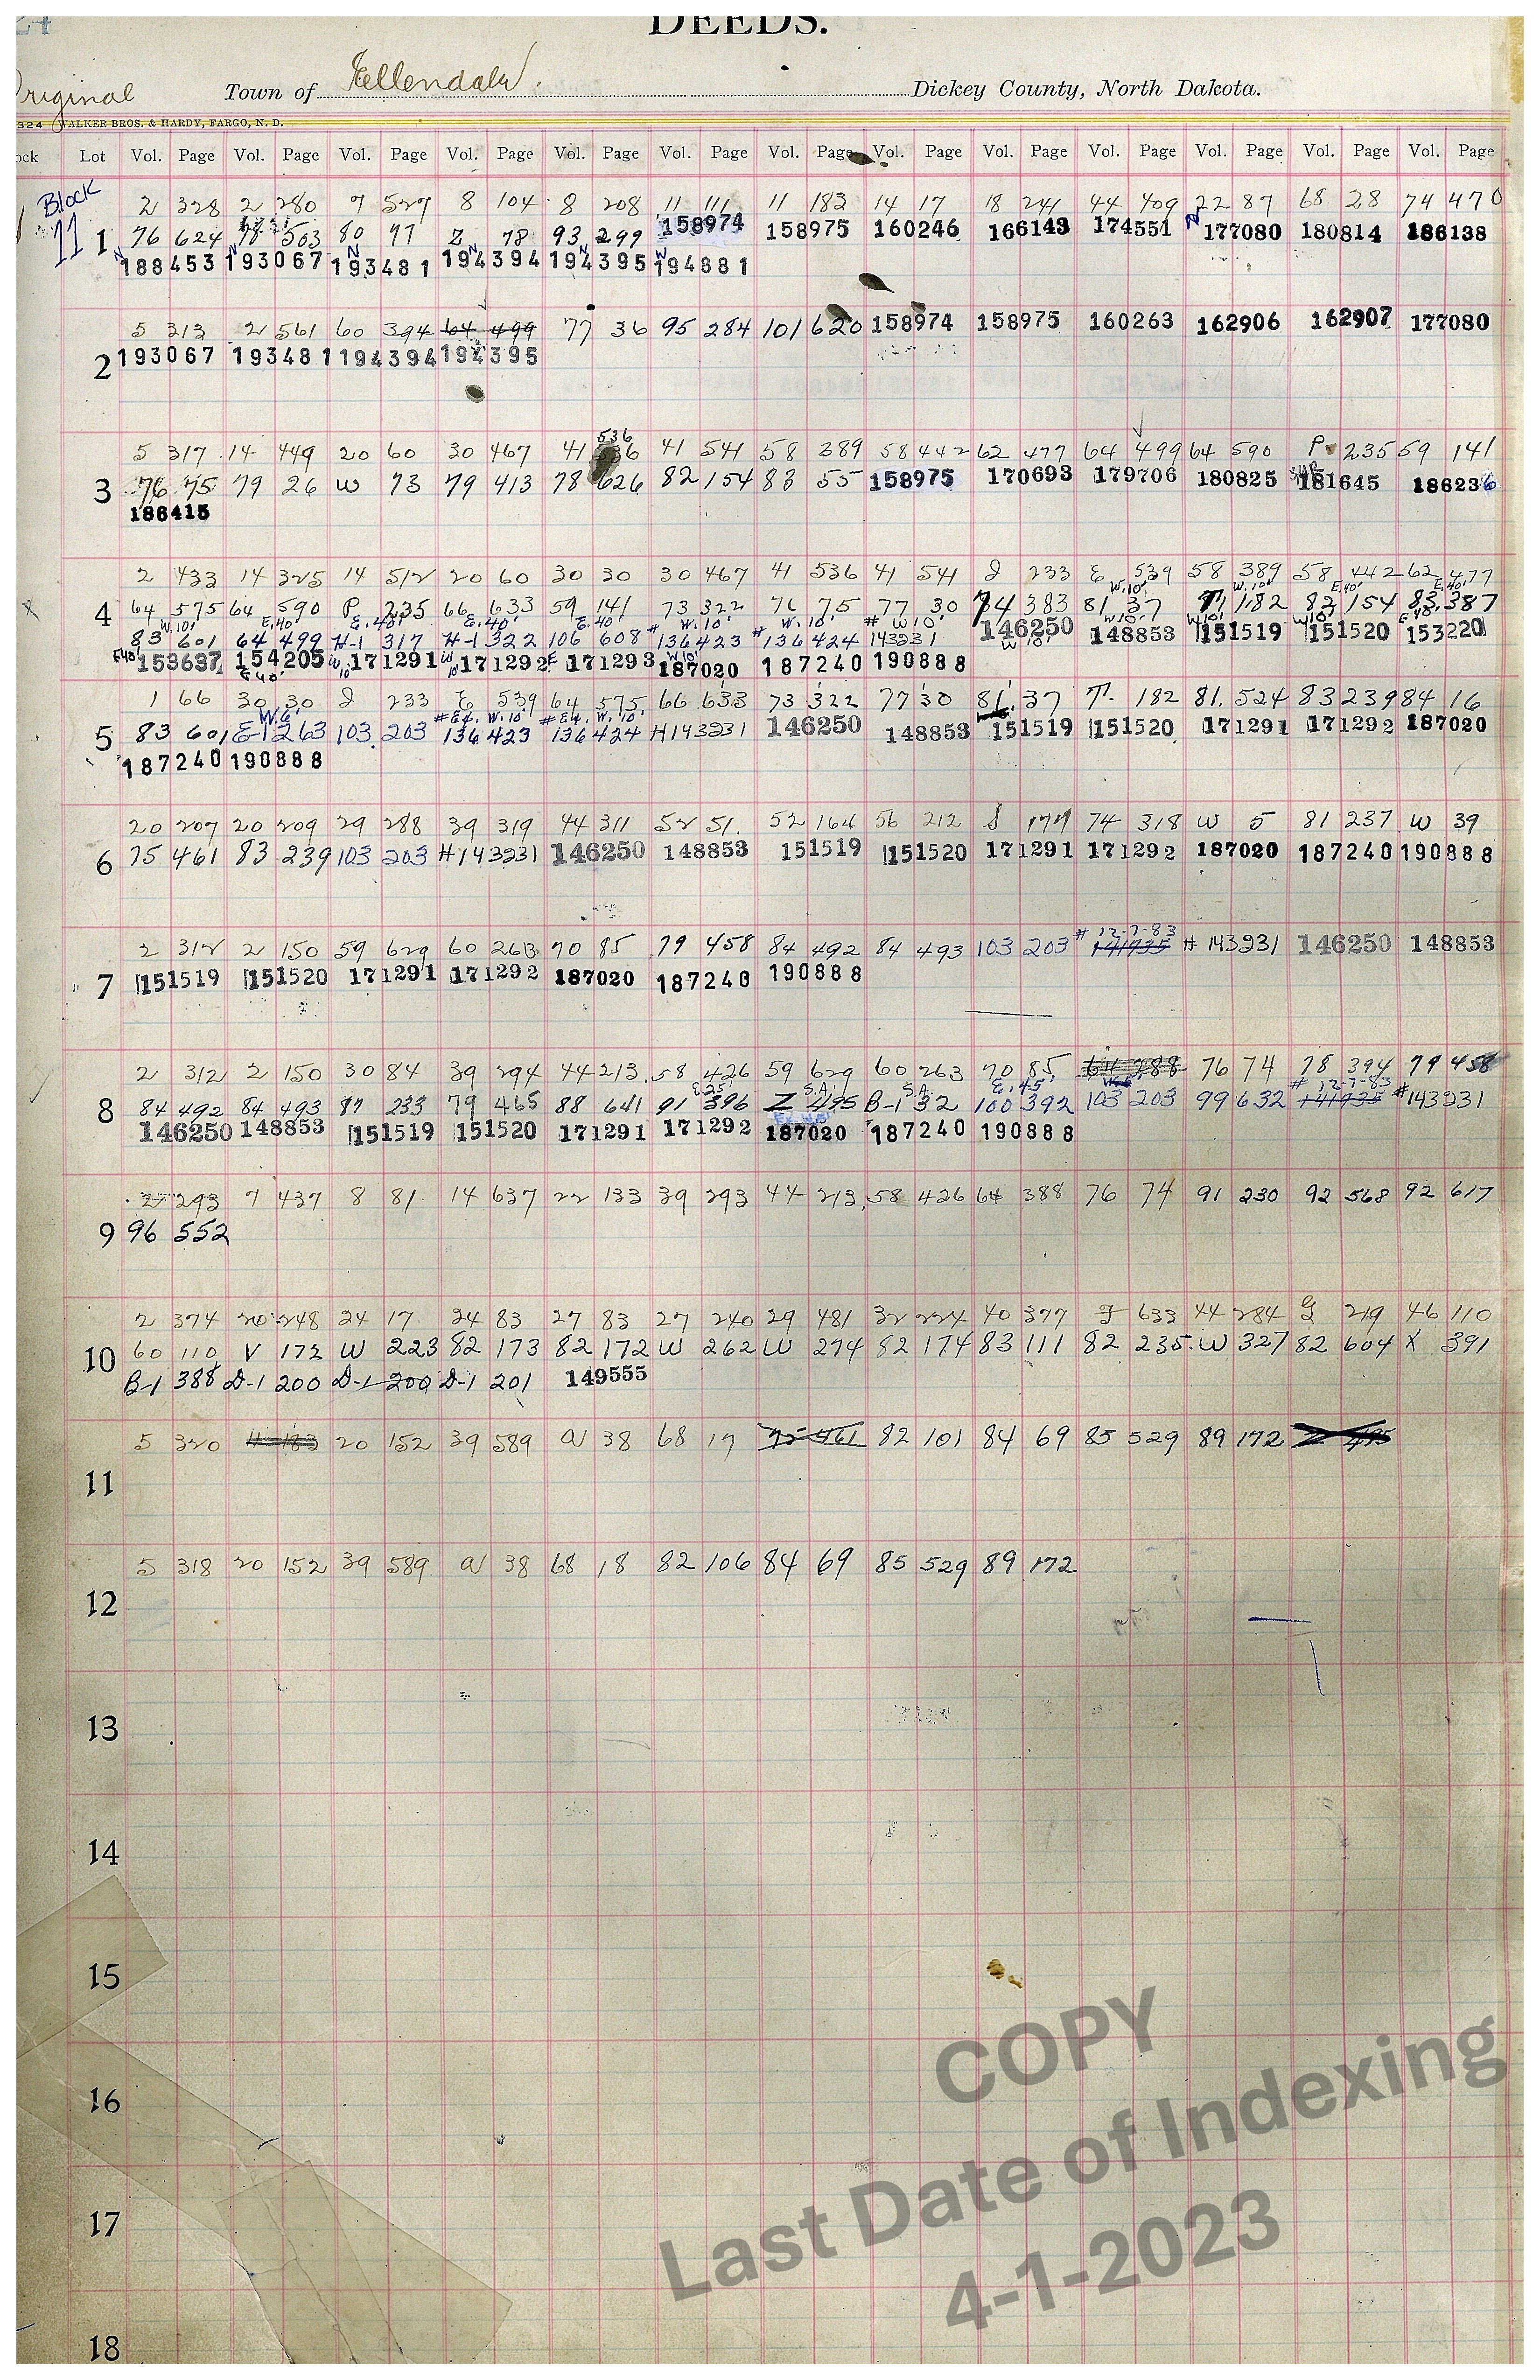 24
DEEDS.
Original Town of Ellendale Dickey County, North Dakota.
324 WALKER BROS. & HARDY, FARGO, N. D.
ock Lot Vol. Page Vol. Page Vol. Page Vol. Page Vol. Page Vol. Page Vol. Page Vol. Page Vol. Page Vol. Page Vol. Page Vol. Page Vol. Page
Block 11
2 328 2 280 7 527 8 104 8 208 11 111 11 183 14 17 18 241 44 409 22 87 68 28 74 470
1 76 624 78 503 80 77 Z 78 93 299 158974 158975 160246 166143 174551 N 177080 180814 186138
N 188453 N 193067 N 193481 N 194394 N 194395 W 194881
5 313 2 561 60 394 64 499 77 36 95 284 101 620 158974 158975 160263 162906 162907 177080
2 193067 193481 194394 194395
536
5 317 14 449 20 60 30 467 41 41 541 58 389 58 442 62 477 64 499 64 590 P 235 59 141
3 76 75 79 26 W 73 79 413 78 626 82 154 83 55 158975 170693 179706 180825 181645 186236
186415
2 433 14 325 14 512 20 60 30 30 30 467 41 536 41 541 J 233 E 539 58 389 58 442 62 477
W.10' W.10' E.40' E.40'
4 64 575 64 590 P 235 66 633 59 141 73 322 76 75 77 30 74 383 81 37 77 182 82 154 83 387
W.10' E.40' E.40' E.40' E.40' # W.10' # W.10' # W10' W10' W10' W10' E.40'
83 601 64 499 H-1 317 H-1 322 106 608 136423 136424 143231 146250 148853 151519 151520 153220
E40' 153637 154205 W 10 171291 W 10 171292 E 171293 W10' 187020 187240 190888 W 10'
E 40'
1 66 30 30 J 233 E 539 64 575 66 633 73 322 77 30 81 37 77 182 81 524 83 239 84 16
W.6' # E4. W.10' # E4. W. 10'
5 83 601 E-1 263 103 203 136 423 136 424 #143231 146250 148853 151519 151520 171291 171292 187020
187240 190888
20 207 20 209 29 288 39 319 44 311 52 51 52 164 56 212 S 174 74 318 W 5 81 237 W 39
6 75 461 83 239 103 203 #143231 146250 148853 151519 151520 171291 171292 187020 187240 190888
# 12-7-83
2 312 2 150 59 629 60 263 70 85 79 458 84 492 84 493 103 203 141935 # 143231 146250 148853
7 151519 151520 171291 171292 187020 187240 190888
2 312 2 150 30 84 39 294 44 213 58 426 59 629 60 263 70 85 64 388 76 74 78 394 79 458
E 25' S.A. S.A. E. 45' # 12-7-83
8 84 492 84 493 87 233 79 465 88 641 91 396 Z 495 B-1 32 100 392 103 203 99 632 141935 #143231
146250 148853 151519 151520 171291 171292 187020 187240 190888
2 293 7 437 8 81 14 637 22 133 39 293 44 213 58 426 64 388 76 74 91 230 92 568 92 617
9 96 552
2 374 20 248 24 17 24 83 27 83 27 240 29 481 32 224 40 377 J 633 44 284 G 219 46 110
10 60 110 V 173 W 223 82 173 82 172 W 262 W 274 82 174 83 111 82 235 W 327 82 604 X 391
B-1 388 D-1 200 D-1 200 D-1 201 149555
5 320 11 183 20 152 39 589 W 38 68 17 75 461 82 101 84 69 85 529 89 172 Z 495
11
5 318 20 152 39 589 W 38 68 18 82 106 84 69 85 529 89 172
12
13
14
15
16
17
18
COPY
Last Date of Indexing
4-1-2023